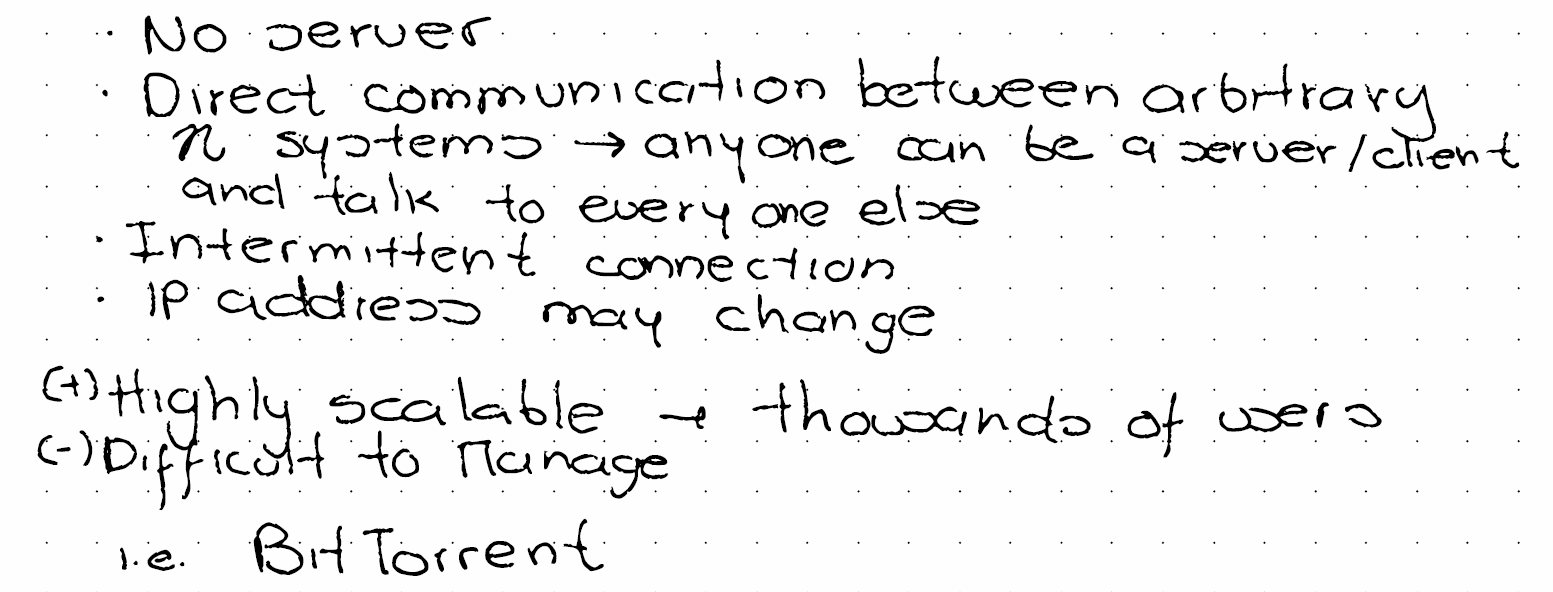 · No server
· Direct communication between arbitrary
n systems → anyone can be a server/client
and talk to everyone else
· Intermittent connection
· IP address may change
(+) Highly scalable → thousands of users
(-) Difficult to Manage
i.e. BitTorrent